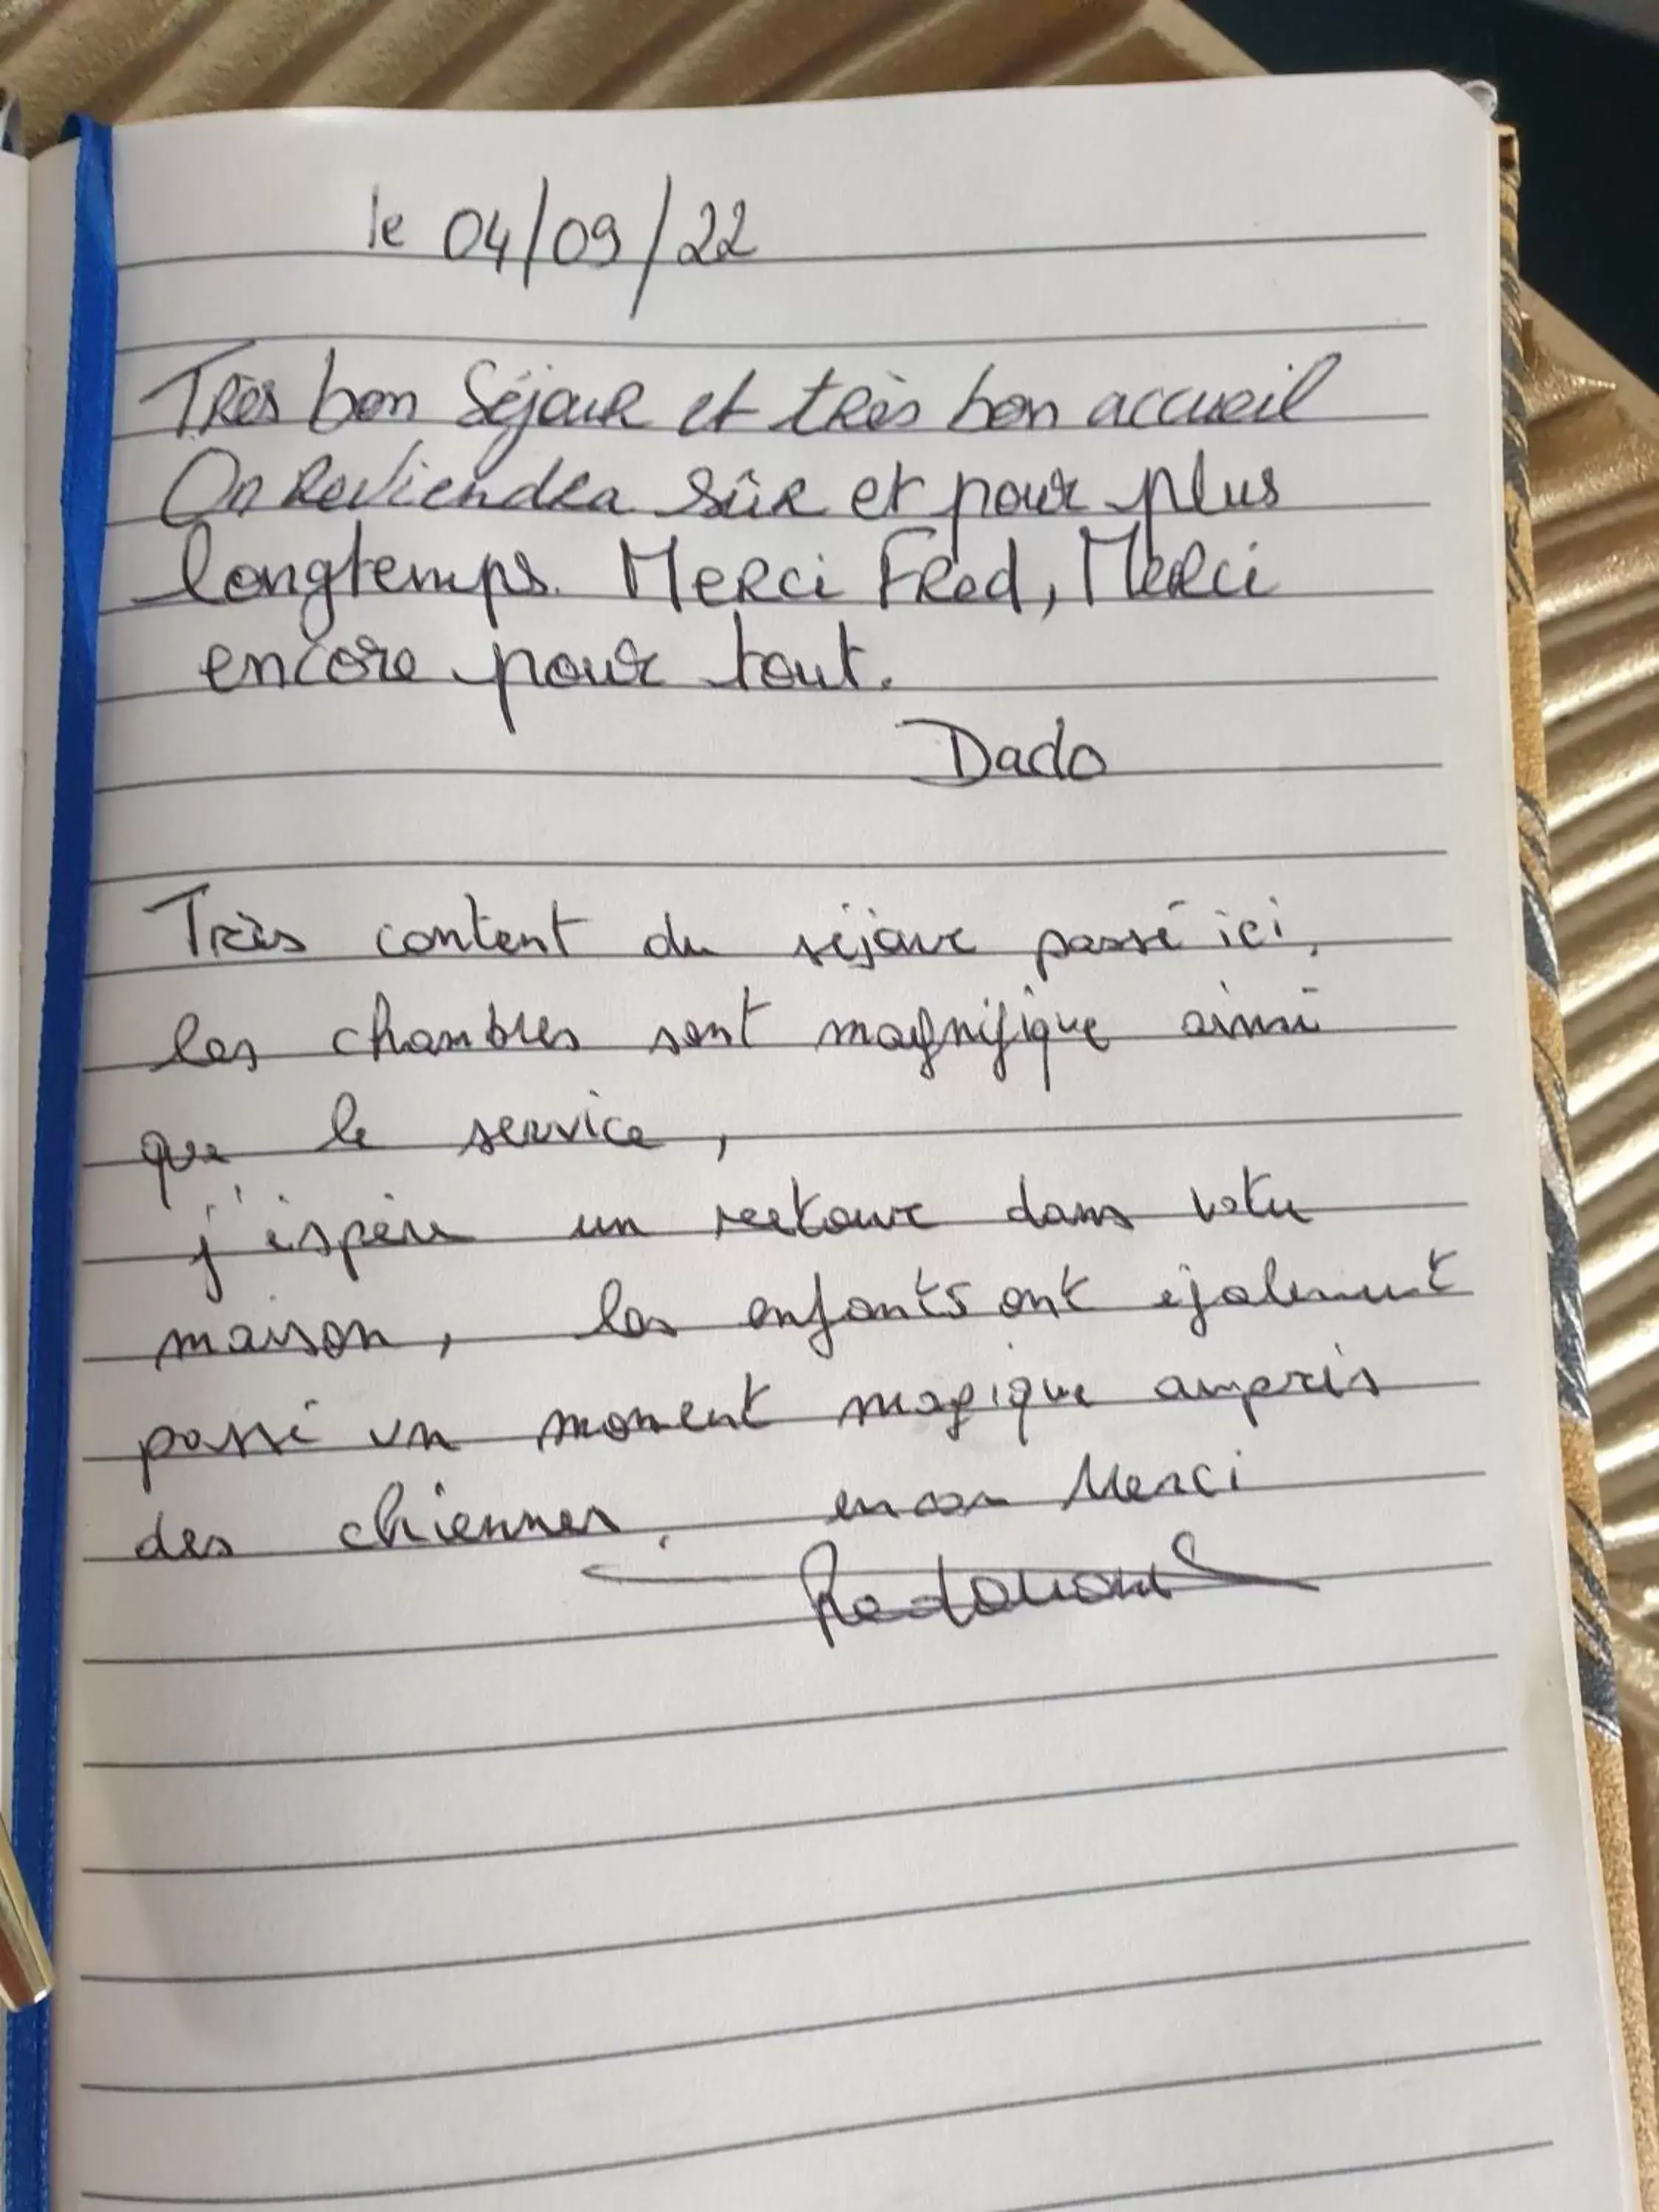 le 04/09/22
Très bon Séjour et très bon accueil
On Reviendra sûr et pour plus
longtemps. Merci Fred, Merci
encore pour tout.
Dado
Très content du séjour passé ici,
les chambres sont magnifique ainsi
que le service,
j'espère un retour dans votre
maison, les enfants ont également
passé un moment magique auprès
des chiennes. encore Merci
Redouane